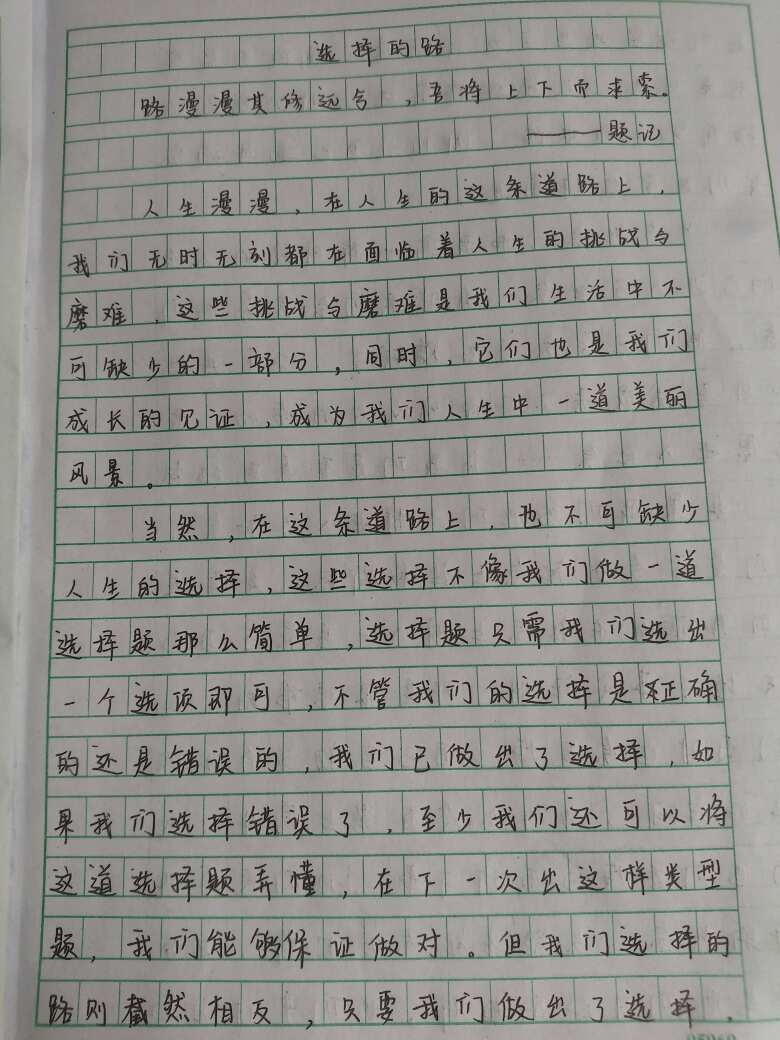 选择的路
路漫漫其修远兮，吾将上下而求索。
——题记
人生漫漫，在人生的这条道路上，
我们无时无刻都在面临着人生的挑战与
磨难，这些挑战与磨难是我们生活中不
可缺少的一部分，同时，它们也是我们
成长的见证，成为我们人生中一道美丽
风景。
当然，在这条道路上，也不可缺少
人生的选择，这些选择不像我们做一道
选择题那么简单，选择题只需我们选出
一个选项即可，不管我们的选择是正确
的还是错误的，我们已做出了选择，如
果我们选择错误了，至少我们还可以将
这道选择题弄懂，在下一次出这样类型
题，我们能够保证做对。但我们选择的
路则截然相反，只要我们做出了选择，